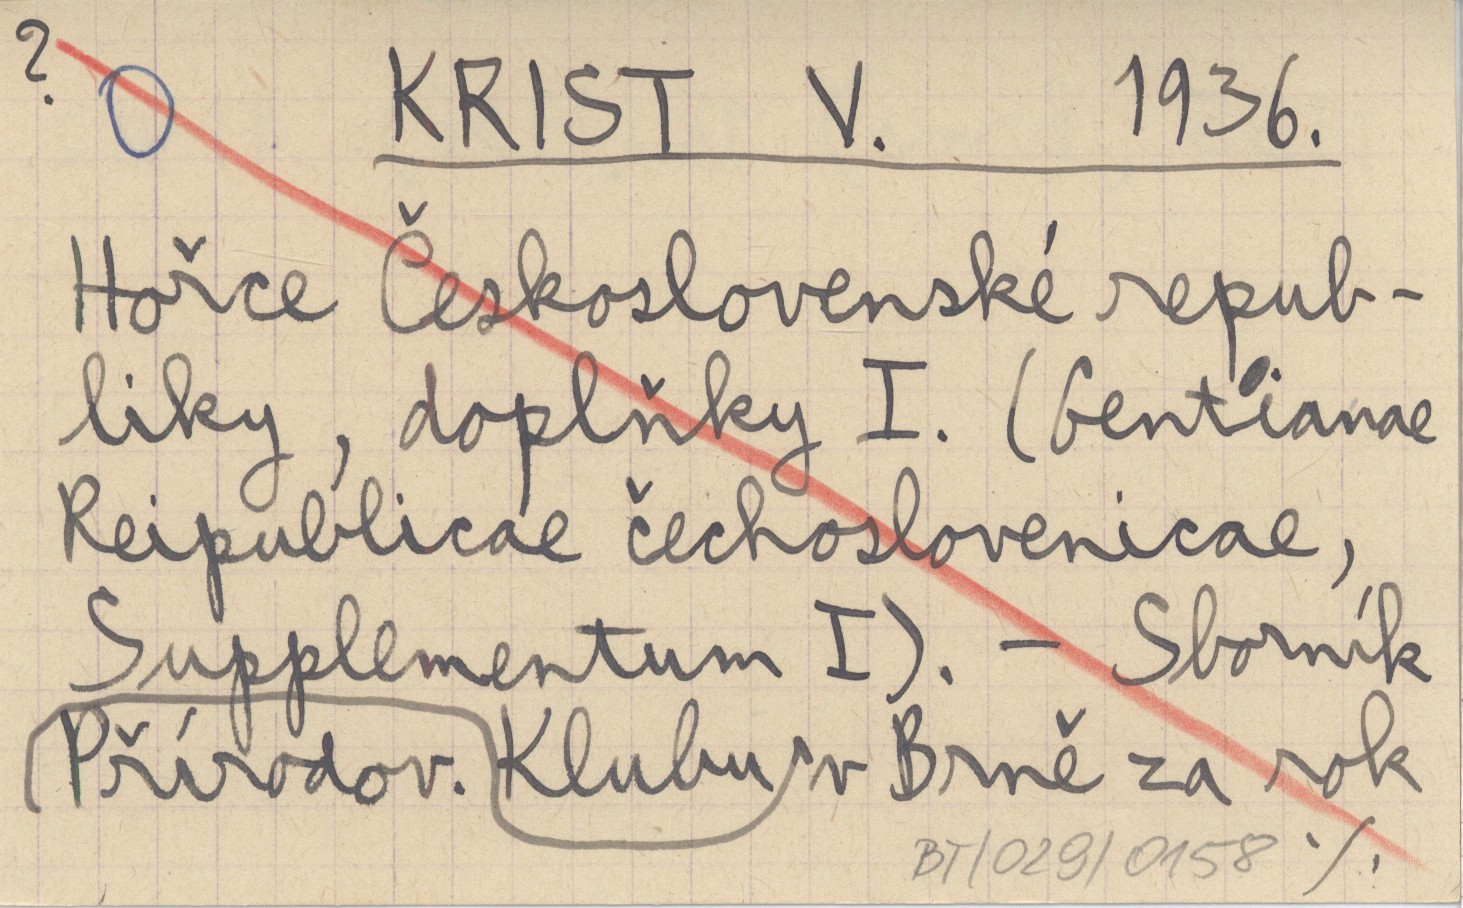 ?
KRIST V. 1936.
Hořce Československé repub-
liky, doplňky I. (Gentianae
Reipublicae čechoslovenicae,
Supplementum I). – Sborník
Přírodov. Klubu v Brně za rok
BT/029/0158 ·/.